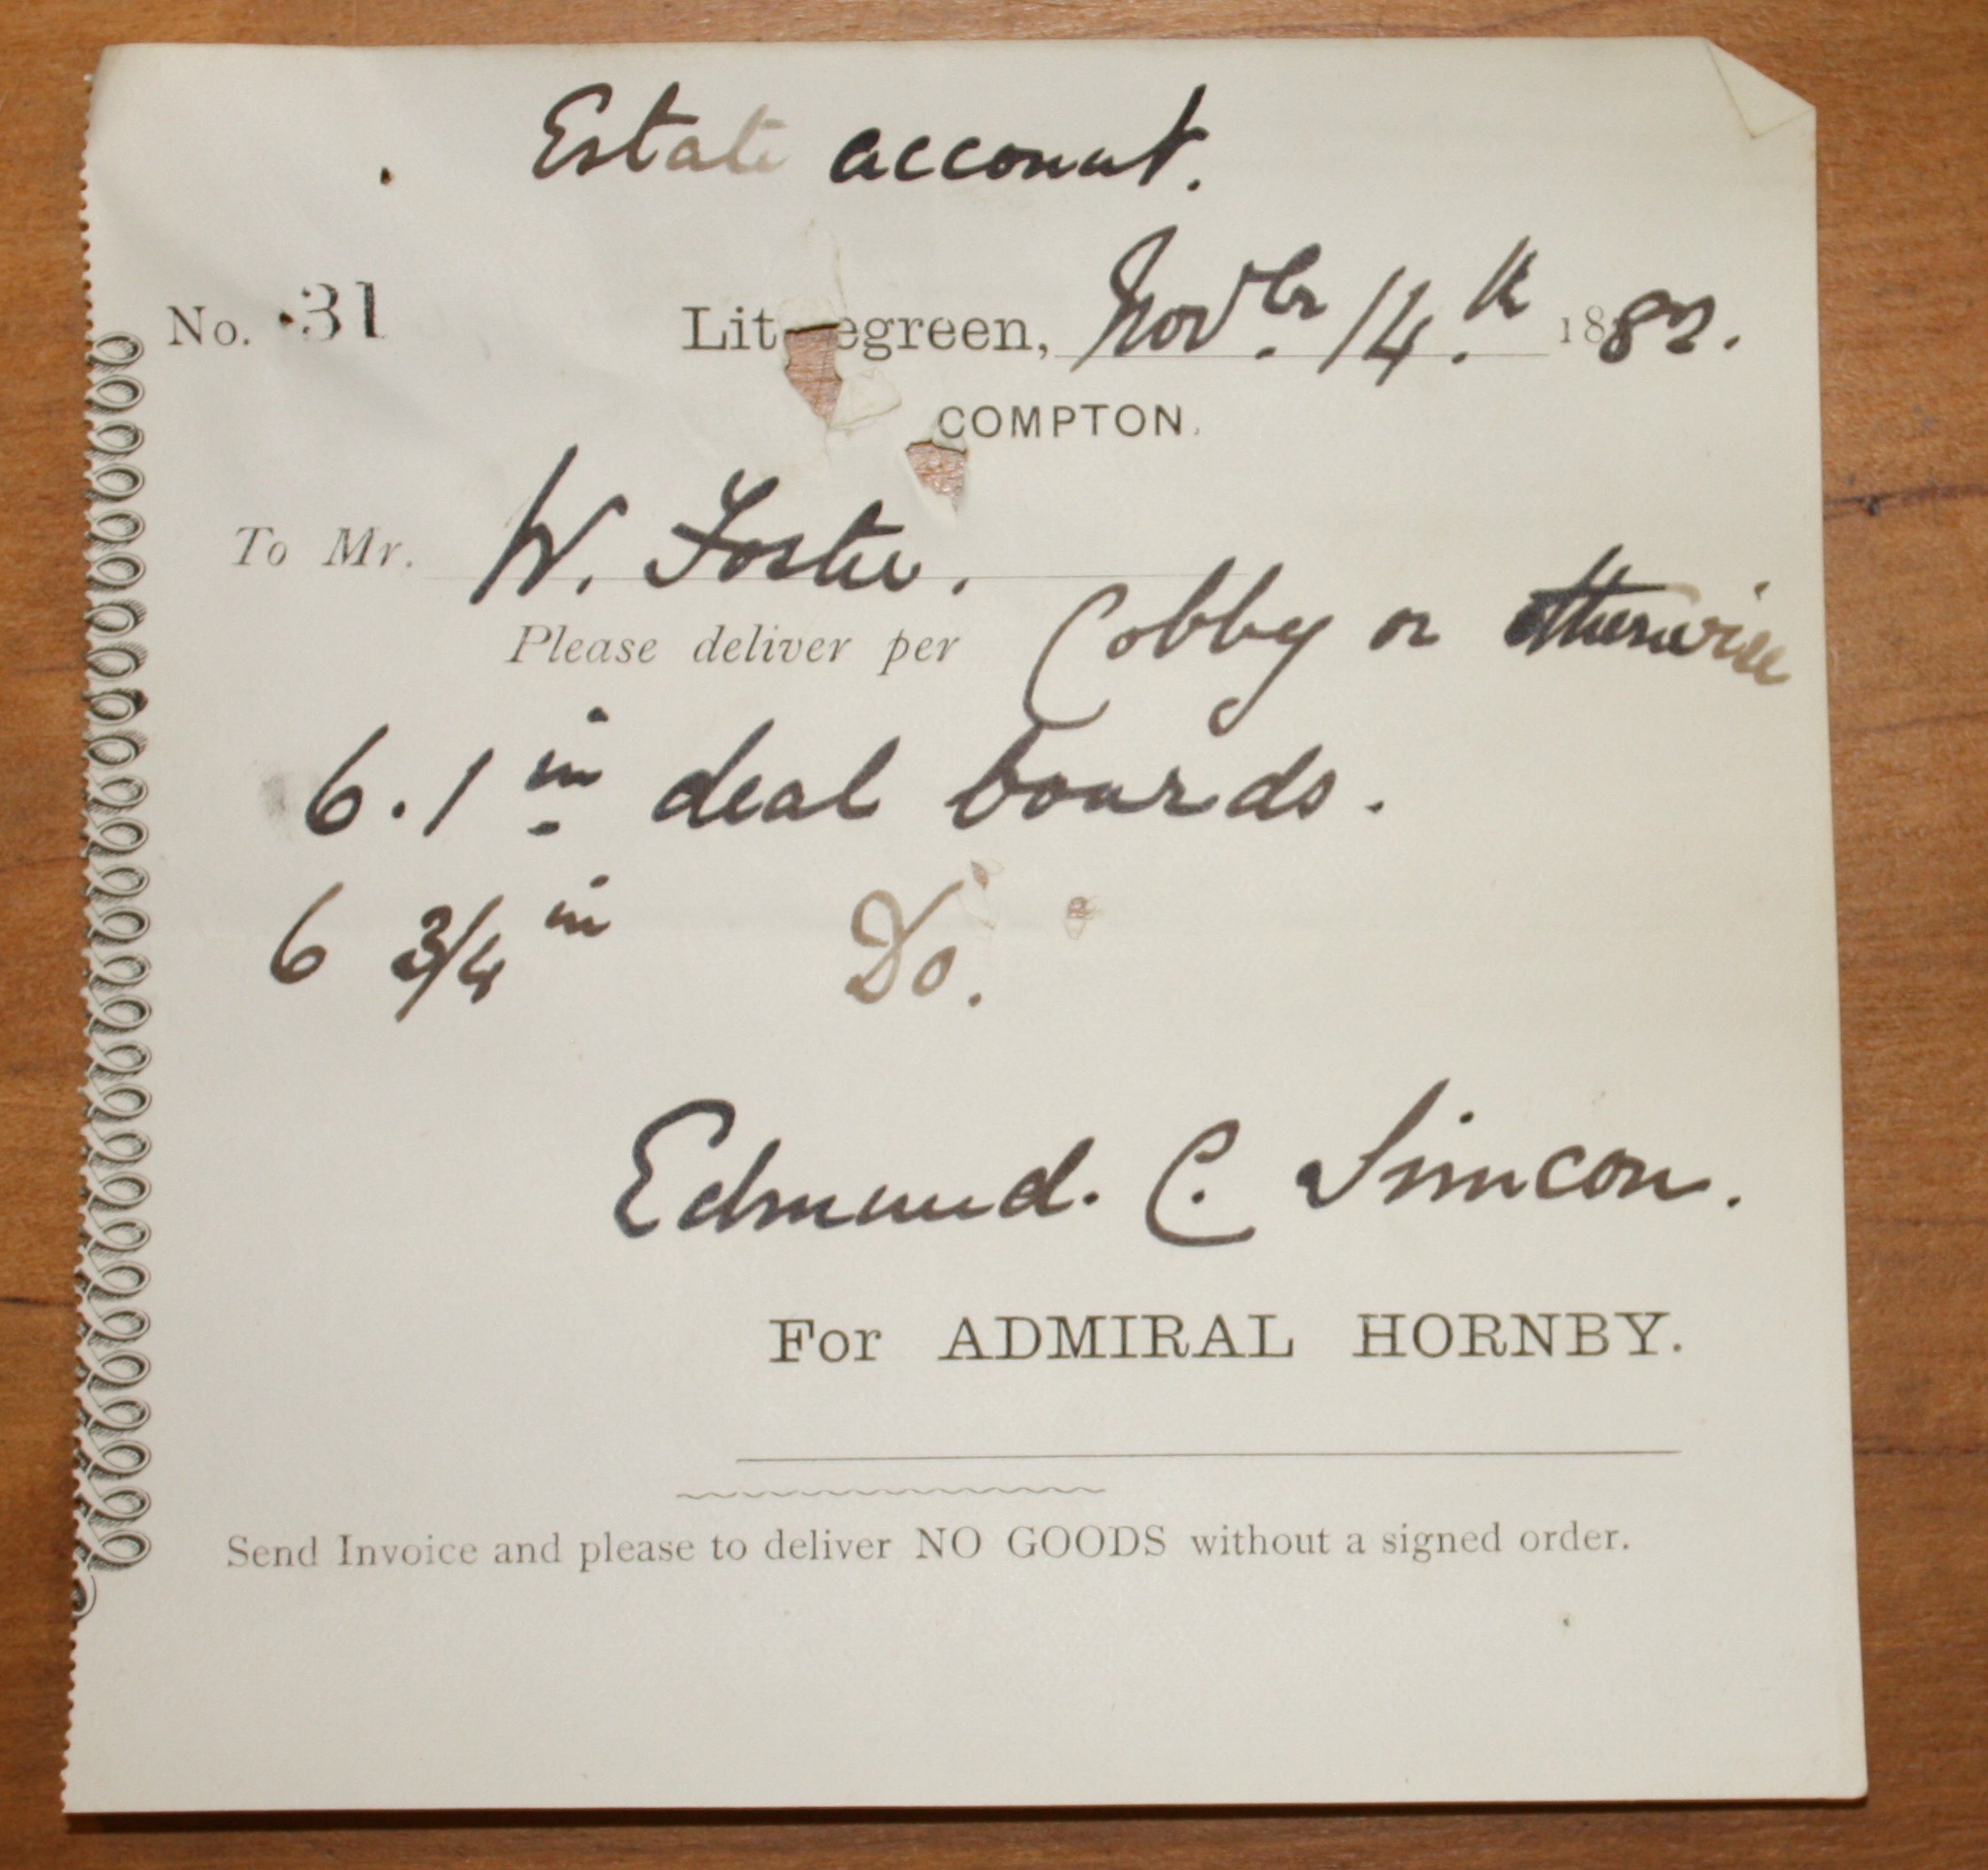 Estate account.
No. 31 Lit egreen, Novbr. 14.th 1882.
COMPTON.
To Mr. W. Foster.
Please deliver per Cobby or otherwise
6. 1 in deal boards.
6 3/4 in Do.
Edmund. C. Simcon.
For ADMIRAL HORNBY.
Send Invoice and please to deliver NO GOODS without a signed order.